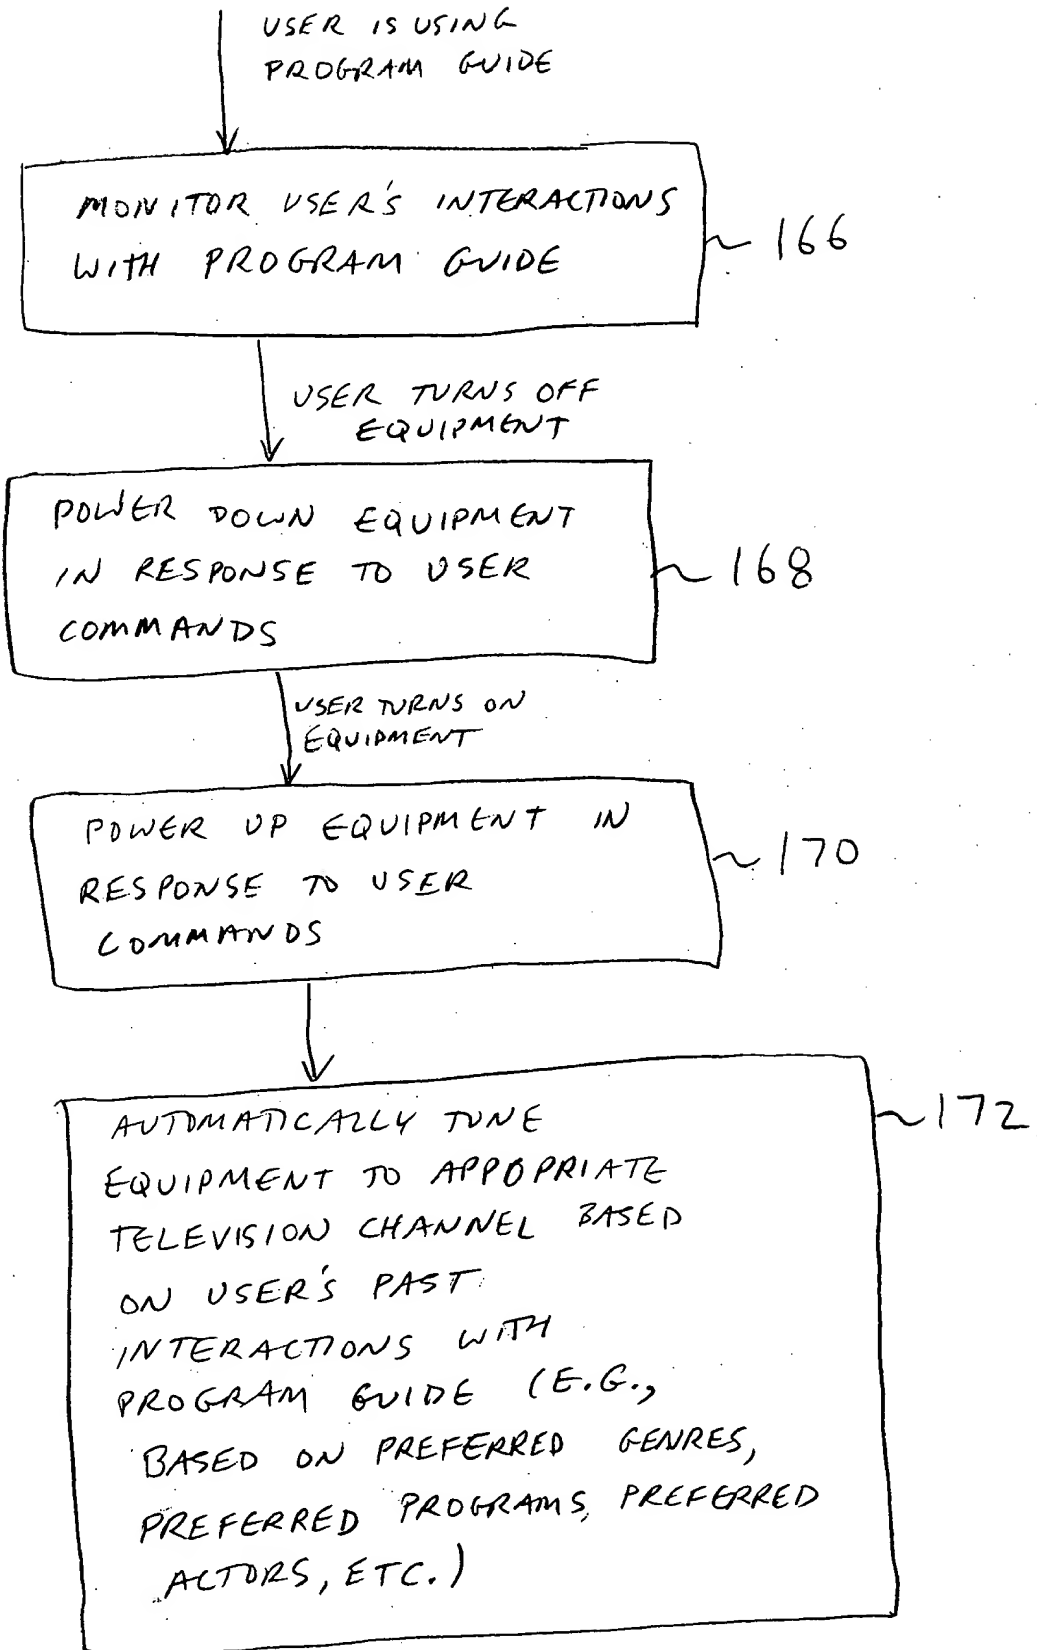 USER IS USING
PROGRAM GUIDE
MONITOR USER'S INTERACTIONS
WITH PROGRAM GUIDE
~ 166
USER TURNS OFF
EQUIPMENT
POWER DOWN EQUIPMENT
IN RESPONSE TO USER
COMMANDS
~ 168
USER TURNS ON
EQUIPMENT
POWER UP EQUIPMENT IN
RESPONSE TO USER
COMMANDS
~ 170
AUTOMATICALLY TUNE
EQUIPMENT TO APPOPRIATE
TELEVISION CHANNEL BASED
ON USER'S PAST
INTERACTIONS WITH
PROGRAM GUIDE (E.G.,
BASED ON PREFERRED GENRES,
PREFERRED PROGRAMS, PREFERRED
ACTORS, ETC.)
~ 172